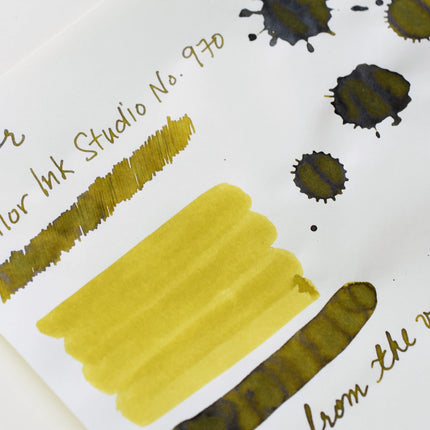 Ink Studio No. 970
from the